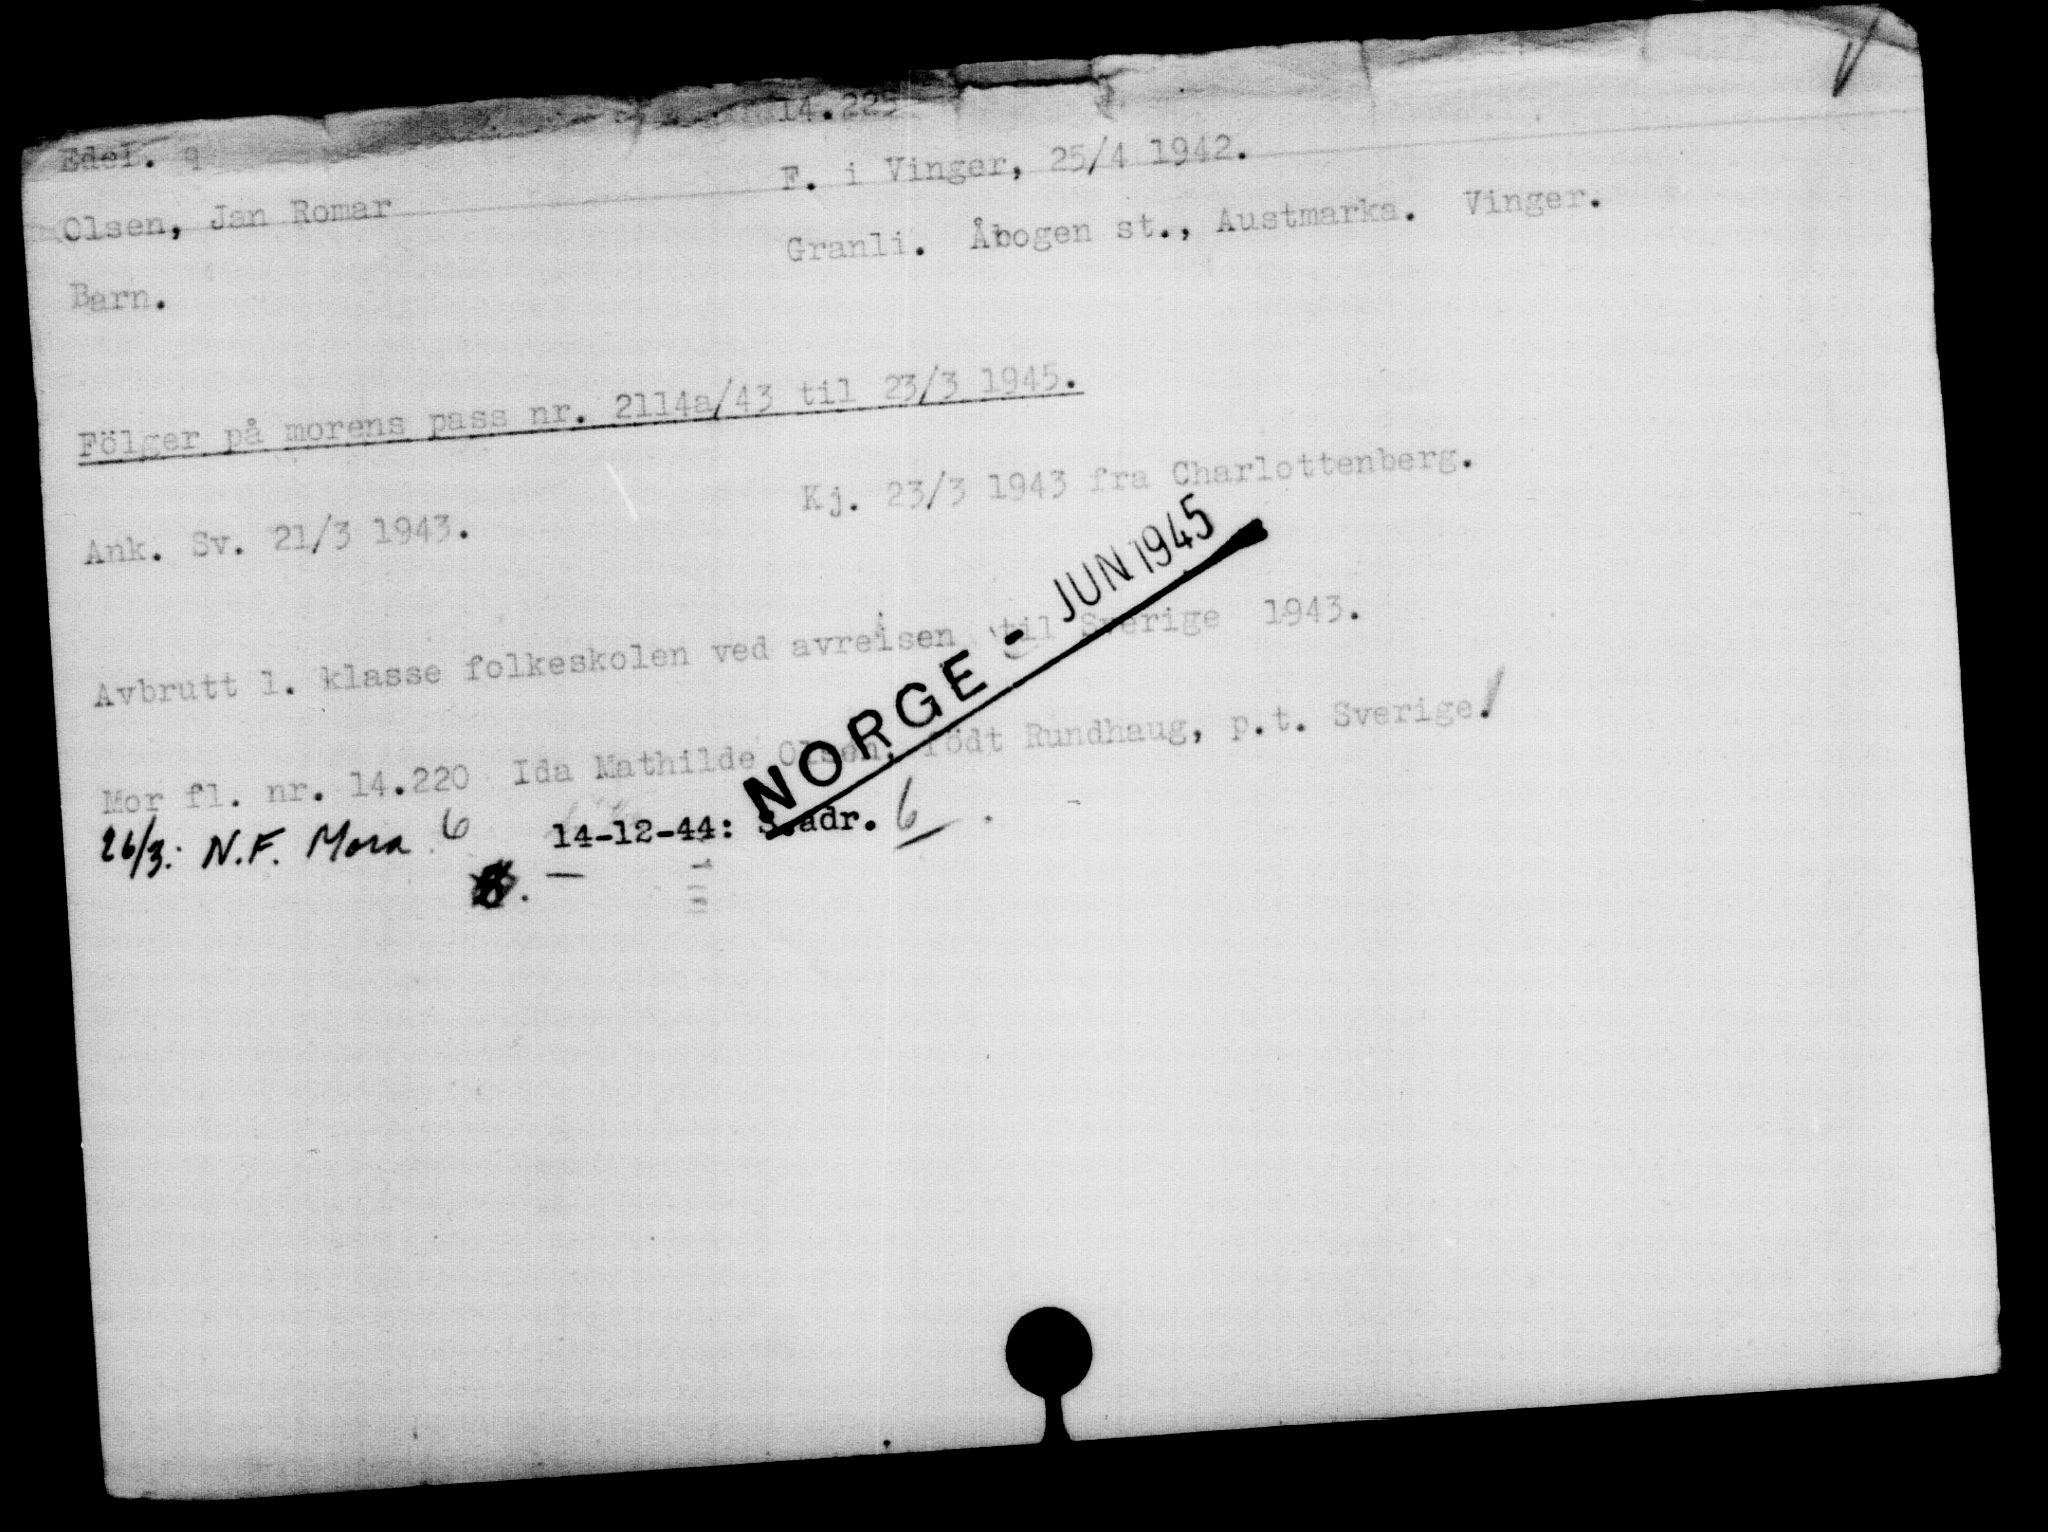 14.225
Edel. q
F. i Vinger, 25/4 1942.
Olsen, Jan Romar
Granli. Åbogen st., Austmarka. Vinger.
Barn.
Fölger på morens pass nr. 2114a/43 til 23/3 1945.
Kj. 23/3 1943 fra Charlottenberg.
Ank. Sv. 21/3 1943.
NORGE - JUN 1945
Avbrutt 1. klasse folkeskolen ved avreisen til Sverige 1943.
Mor fl. nr. 14.220 Ida Mathilde Olsen, födt Rundhaug, p.t. Sverige.
26/3: N.F. Mora 6 14-12-44: S.adr. 6